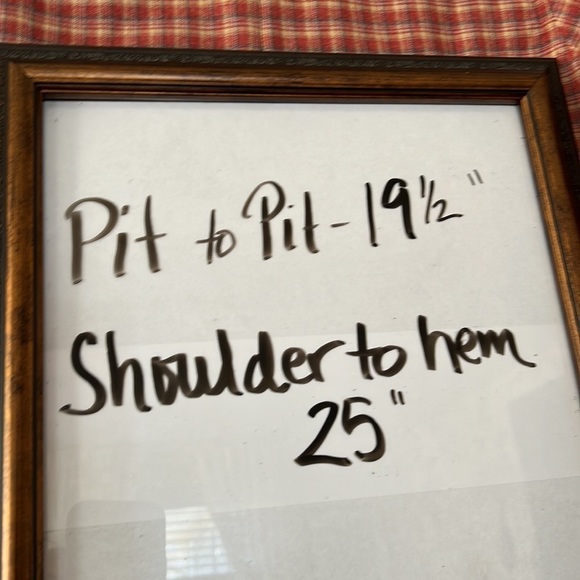 Pit to Pit - 19 1/2"
Shoulder to hem
25"